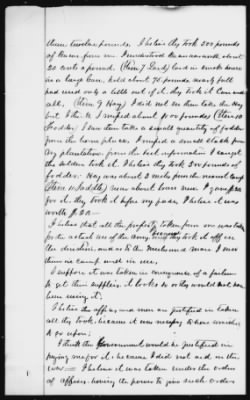 them twelve pounds. I believe they took 200 pounds
of Bacon from me. I understood Bacon was worth about
20 cents a pound. (Item 7 Lard) Lard in smoke house
in a large Can, held about 75 pounds nearly full
had used only a little out of it. they took it Can and
all. (Item 9 Hay) I did not see them take the Hay
but I the
Fodder) I saw them take a small quantity of fodder
from the home place. I missed a small stack from
my plantation from the best information I could get
the soldiers took it. I believe they took 200 pounds of
fodder. Hay was about 3 miles from the nearest Camp
(Item 11 Saddle) was about
for it. they took it before my face. I believe it was
worth $20 —
I believe that all the property taken from me was taken
for the actual use of the Army, because they took it off in
the direction, and as to the mules and
them in camp and in use.
I suppose it was taken in consequence of a failure
to get their supplies. it looks so or they would not have
been using it.
I believe the officers and men are justified in taken
all they took, because it was necessary to have
to go upon.
I think the Government would be justified in
paying me for it because I did not aid in the
war — I believe it was taken under the orders
of officers having the power to give such orders